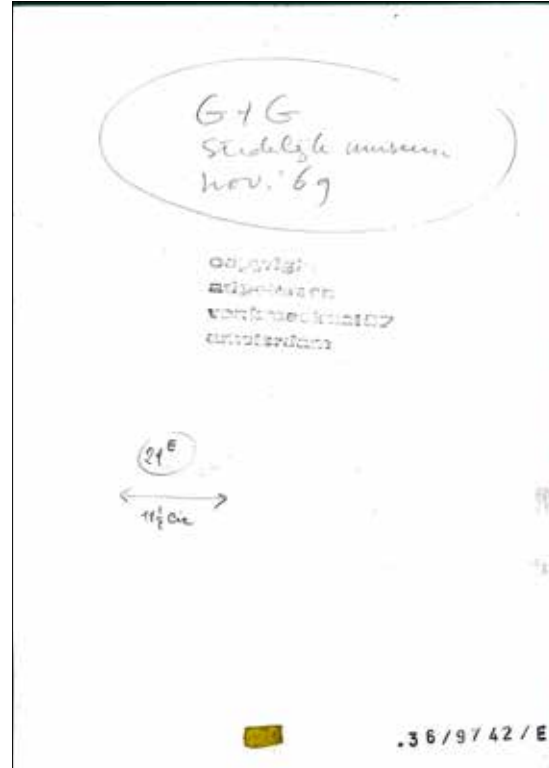 G + G
Stedelijk museum
nov. '69
copyright
ad petersen
amsterdam
21 E
11½ Cic
.36/9742/E